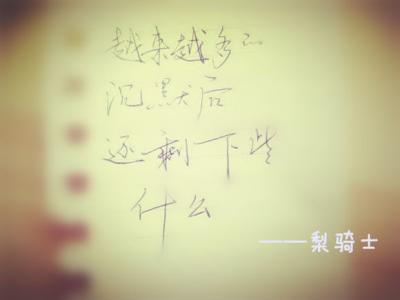 越来越多的
沉默后
还剩下些
什么
——梨骑士